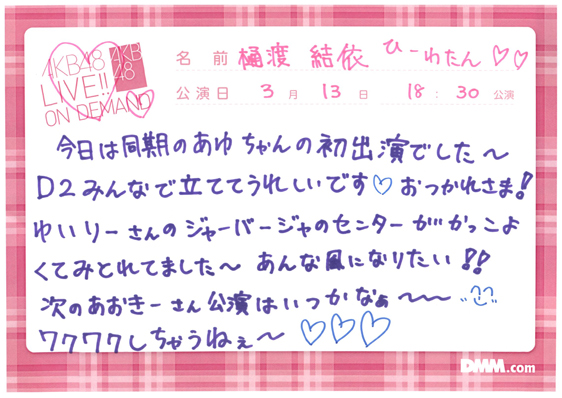 AKB48
LIVE!!
ON DEMAND
AKB
48
名前 樋渡 結依 ひーわたん♡♡
公演日 3月13日 18:30公演
今日は同期のあゆちゃんの初出演でした〜
D2みんなで立ててうれしいです♡おつかれさま!
ゆいりーさんのジャーバージャのセンターがかっこよ
くてみとれてました〜 あんな風になりたい!!
次のあおきーさん公演はいつかなぁ〜〜
ワクワクしちゃうねぇ〜♡♡♡
DMM.com